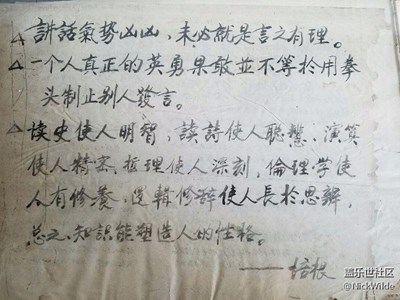 △讲話氣势凶凶，未必就是言之有理。
△一个人真正的英勇果敢並不等於用拳
头制止别人發言。
△读史使人明智，讀詩使人聪慧、演算
使人精密、哲理使人深刻，倫理学使
人有修養，逻輯修辞使人長於思辨，
总之，知識能塑造人的性格。
——培根
盖乐世社区
@NickWilde